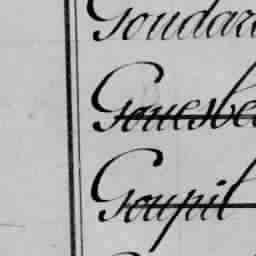 Goudar
Gouesbe
Goupil